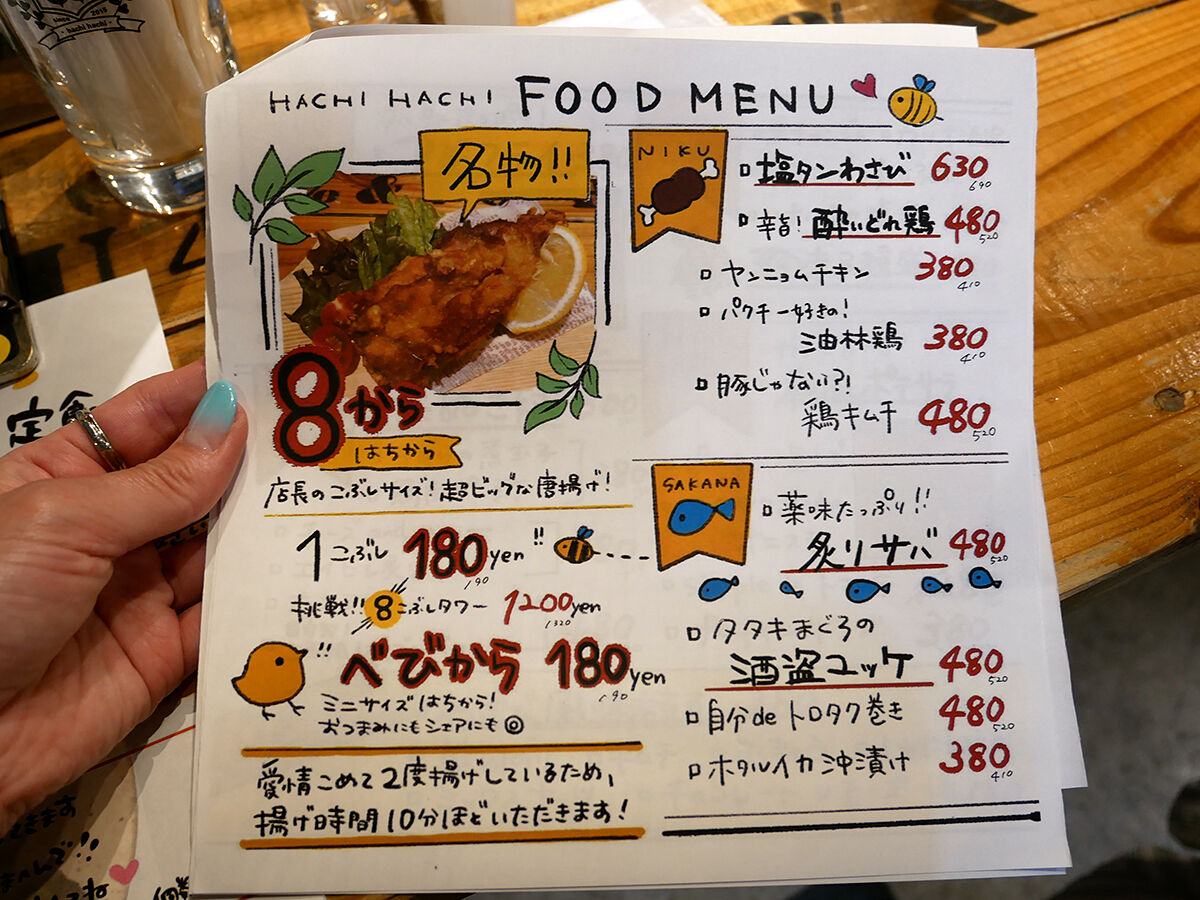 since 2015
- hachi hachi -
HACHI HACHI FOOD MENU
名物!!
8から
はちから
店長のこぶしサイズ!超ビッグな唐揚げ!
1こぶし 180yen!!
190
挑戦!! 8こぶしタワー 1200yen
1320
!! べびから 180yen
190
ミニサイズはちから!
おつまみにもシェアにも◎
愛情こめて2度揚げしているため、
揚げ時間10分ほどいただきます!
NIKU
塩タンわさび 630
690
辛旨!酔いどれ鶏 480
520
ヤンニョムチキン 380
410
パクチー好きの!
油林鶏 380
410
豚じゃない?!
鶏キムチ 480
520
SAKANA
薬味たっぷり!!
炙りサバ 480
520
タタキまぐろの
酒盗ユッケ 480
520
自分deトロタク巻き 480
520
ホタルイカ沖漬け 380
410
定食